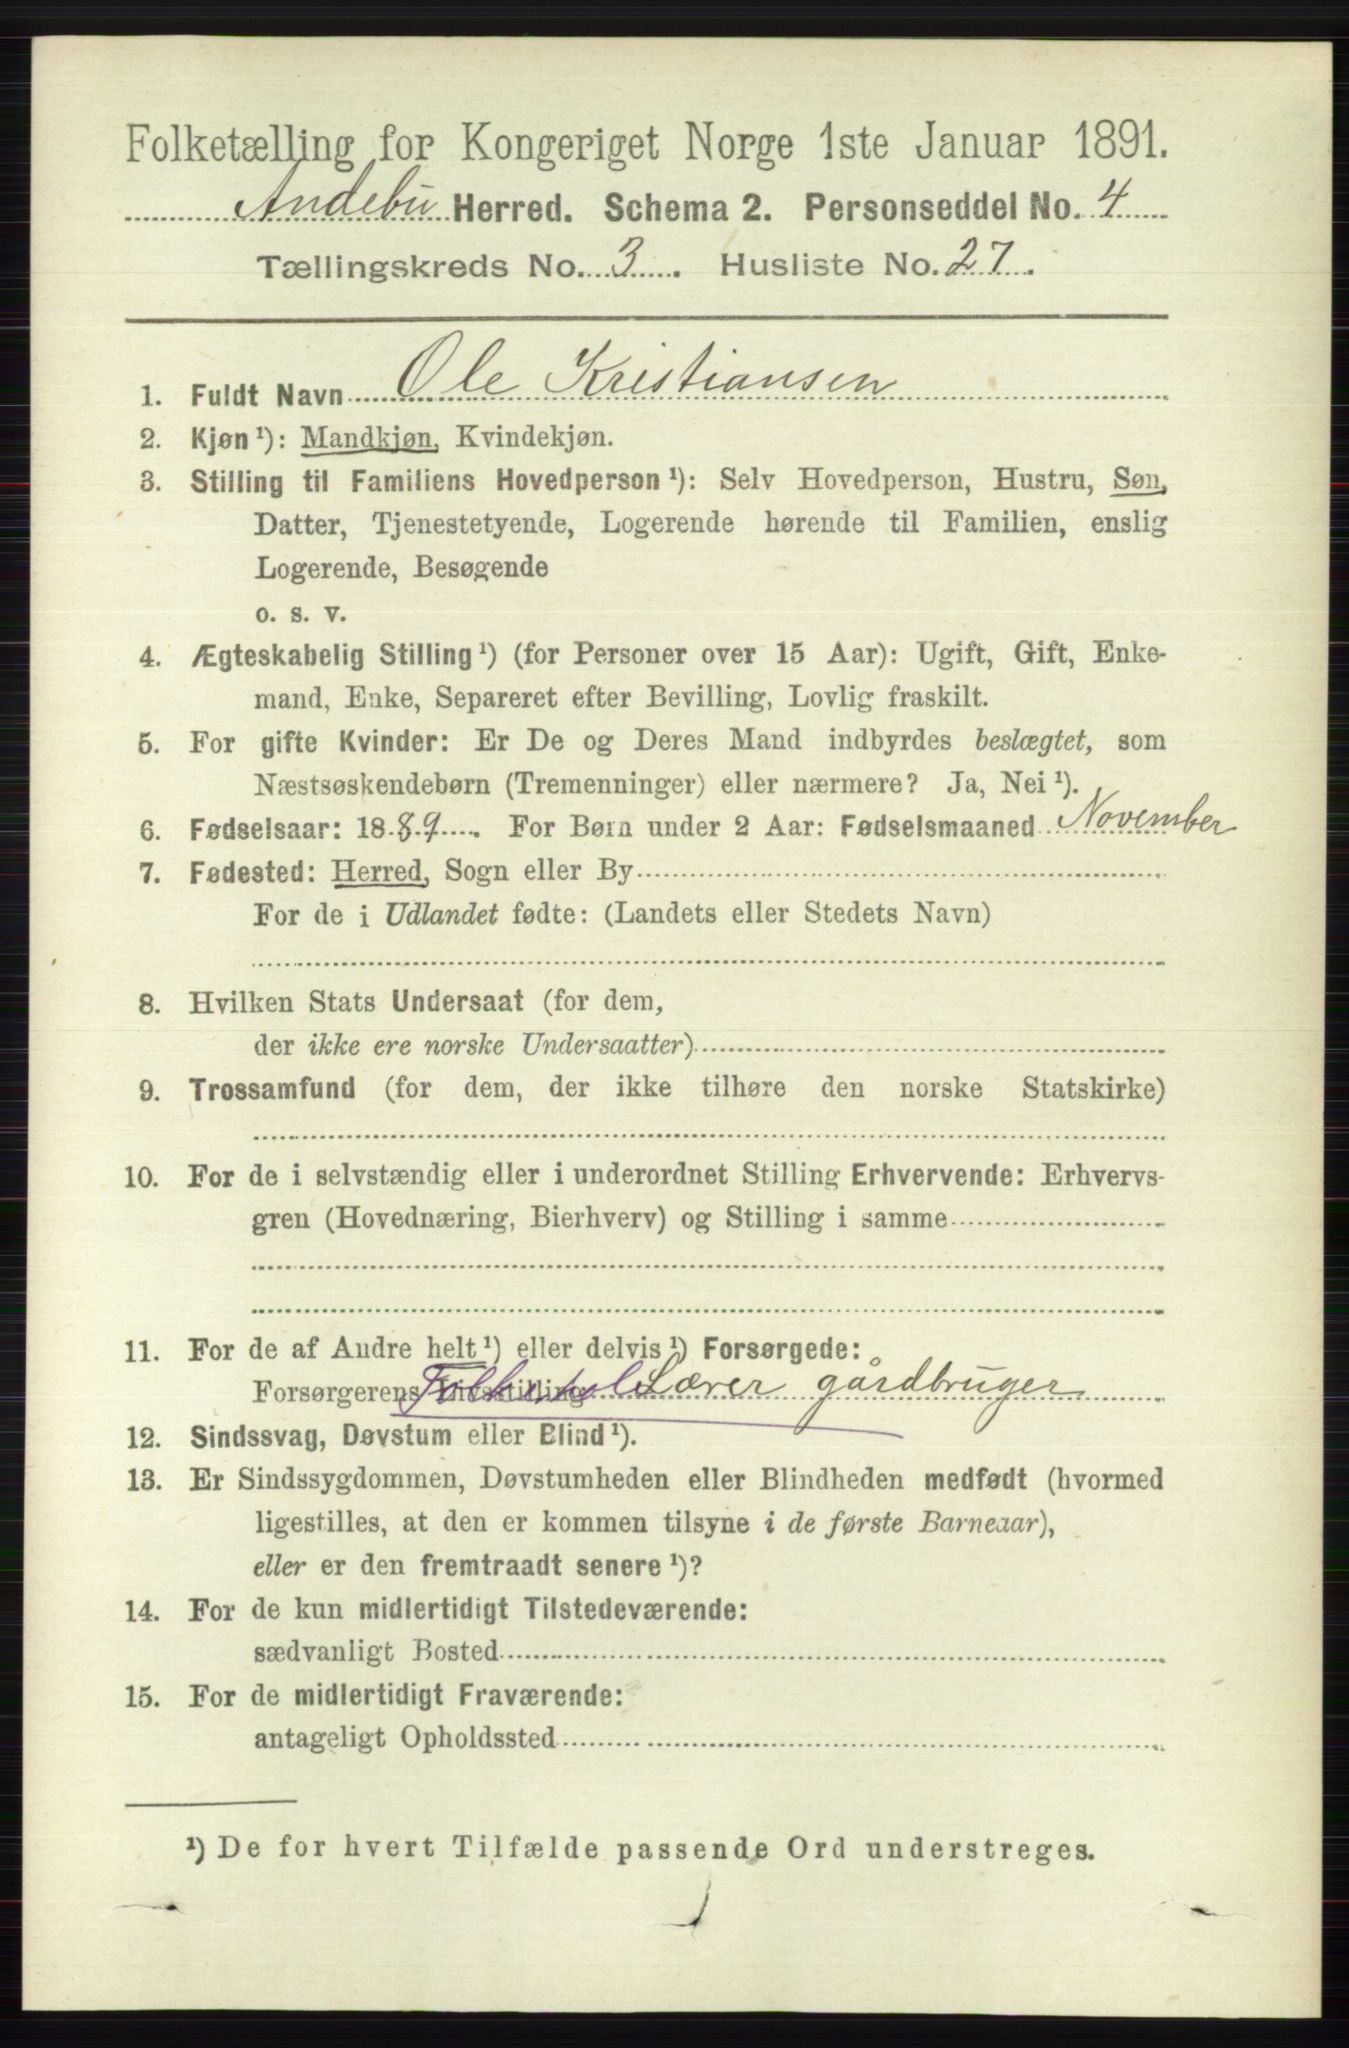 Folketælling for Kongeriget Norge 1ste Januar 1891.
Andebu Herred. Schema 2. Personseddel No. 4
Tællingskreds No. 3. Husliste No. 27.
1. Fuldt Navn Ole Kristiansen
2. Kjøn ¹): Mandkjøn, Kvindekjøn.
3. Stilling til Familiens Hovedperson ¹): Selv Hovedperson, Hustru, Søn,
Datter, Tjenestetyende, Logerende hørende til Familien, enslig
Logerende, Besøgende
o. s. v.
4. Ægteskabelig Stilling ¹) (for Personer over 15 Aar): Ugift, Gift, Enke-
mand, Enke, Separeret efter Bevilling, Lovlig fraskilt.
5. For gifte Kvinder: Er De og Deres Mand indbyrdes beslægtet, som
Næstsøskendebørn (Tremenninger) eller nærmere? Ja, Nei ¹).
6. Fødselsaar: 1889. For Børn under 2 Aar: Fødselsmaaned November
7. Fødested: Herred, Sogn eller By
For de i Udlandet fødte: (Landets eller Stedets Navn)
8. Hvilken Stats Undersaat (for dem,
der ikke ere norske Undersaatter)
9. Trossamfund (for dem, der ikke tilhøre den norske Statskirke)
10. For de i selvstændig eller i underordnet Stilling Erhvervende: Erhvervs-
gren (Hovednæring, Bierhverv) og Stilling i samme
11. For de af Andre helt ¹) eller delvis ¹) Forsørgede:
Forsørgerens Livsstilling Folkeskol Lærer gårdbruger
12. Sindssvag, Døvstum eller Blind ¹).
13. Er Sindssygdommen, Døvstumheden eller Blindheden medfødt (hvormed
ligestilles, at den er kommen tilsyne i de første Barneaar),
eller er den fremtraadt senere ¹)?
14. For de kun midlertidigt Tilstedeværende:
sædvanligt Bosted
15. For de midlertidigt Fraværende:
antageligt Opholdssted
¹) De for hvert Tilfælde passende Ord understreges.